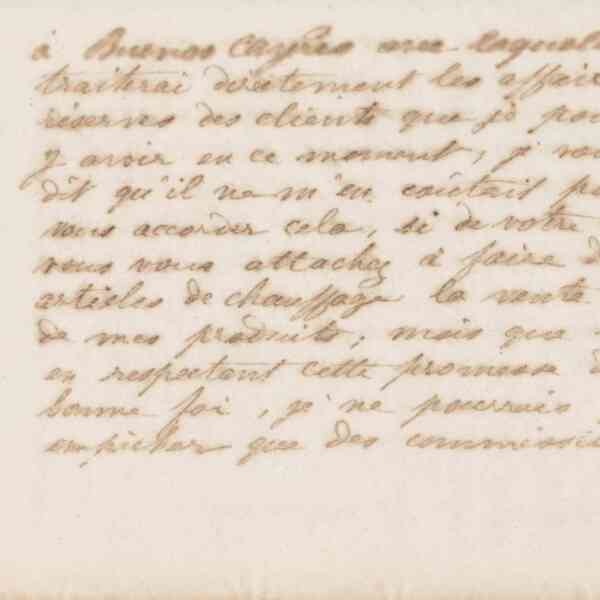 à Buenos Cayres avec laquelle
traiterai directement les affair
réserves des clients que je pou
y avoir en ce moment, je vou
dit qu'il ne m'en coûtais pa
vous accorder cela, si de votre
vous vous attachez à faire d
articles de chauffage la vente
de mes produits; mais que
en respectant cette promesse d
bonne foi, je ne pourrais
empêcher que des commissi